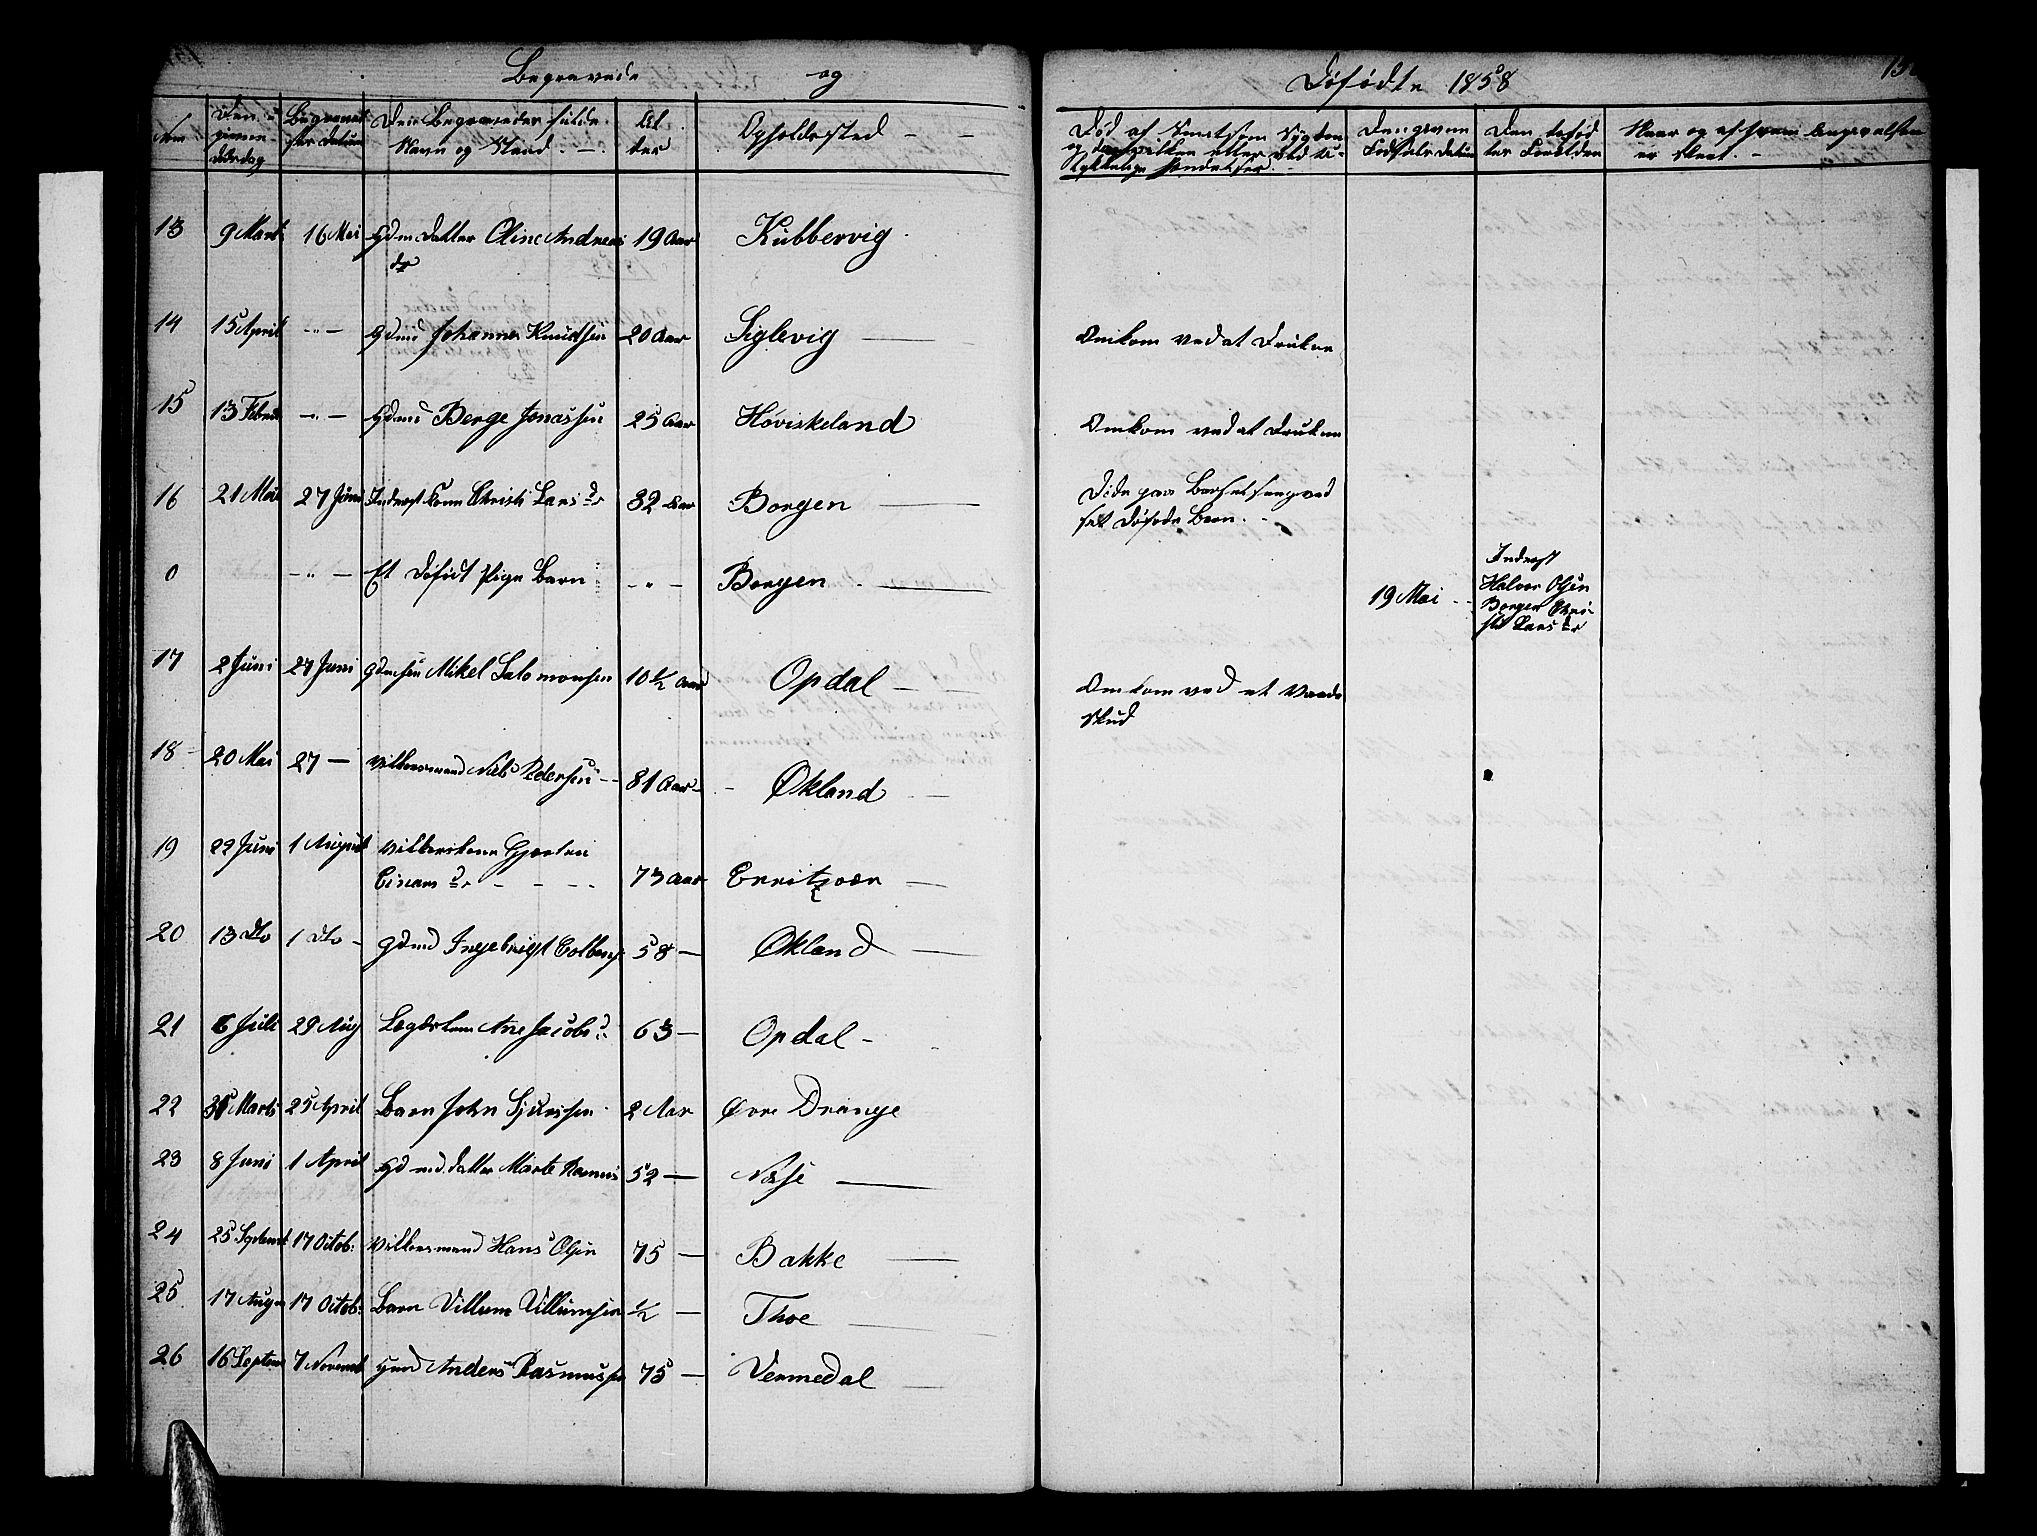 Begravede og Døfødte 1858
Num
Den i
given
Dødsdag
Begravel
ses datum
Den Begravedes fulde
Navn og Stand. -
Al
der
Opholdssted - -
Død af
Den given
Fødsels datum
Den døfød
tes Forældre
Naar og af hvem
er skeet. -
13 9 Marts 16 Mai Gdm datter Oline Andreas 19 Aar Kubbervig
dr
14 15 April -"- Gdmd Johannes Knudsen 20 Aar Siglevig Omkom ved at Drukne
15 13 Febru -"- Gdmd Berge Jonassen 25 Aar Høviskeland Omkom ved at Drukne
16 21 Mai 27 Juni Inderst Kone Christi Lars dr 32 Aar Borgen Døde paa Barselseng med
sit Døfødte Barn. -
0 -"- Et Døfødt Pige Barn -"- Borgen 19 Mai Inderst
Halvor Olsen
Borgen Chri-
sti Lars dr
17 2 Juni 27 Juni Gdm søn Mikel Salomonsen 10½ Aar Opdal - Omkom ved et Vaade
skud
18 20 Mai 27 - Vilkersmand Niels Pedersen - 81 Aar - Økland -
19 22 Juni 1 August Vilkerskone Gjertru
Einars dr - - - 73 Aar Erritzvær
20 13 Dto 1 Dto - Gdmd Ingebrigt Tolbens 58 - Økland
21 6 Juli 29 Aug Lægdslem Ane Jacobs dr 63 - Opdal -
22 31 Marts 25 April Barn John Sjursen 2 Aar Øvre Drange
23 8 Juni 1 April Gdmd. datter Marte Rasmus 52 - Næse
24 25 Septembr 17 Octob: Vilkersmand Hans Olsen 75 - Bakke
25 17 Augu 17 Octob: Barn Villum Villumsen ½ - Thoe
26 16 Septem 7 Novemb Hmd Anders Rasmussen 75 - Vermedal